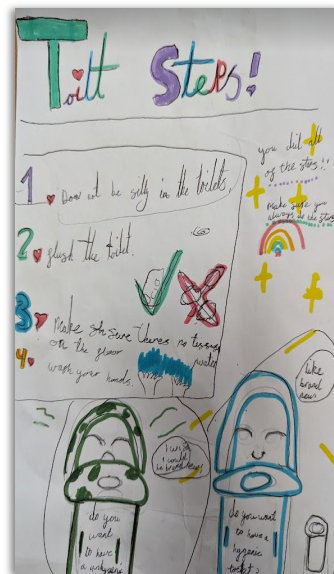 Toilt Steps!
1 Do not be silly in the toilets.
2 flush the toilet.
3 Make sh sure theres no tissues
on the floor
water
4. wash your hands.
you did all
of the steps!!
Make sure you
always do the steps
like
brand
new
I wish
I could
be brand new!
do you
want
to have
a unhygenic
do you want
to have a
hygenic
toilet?